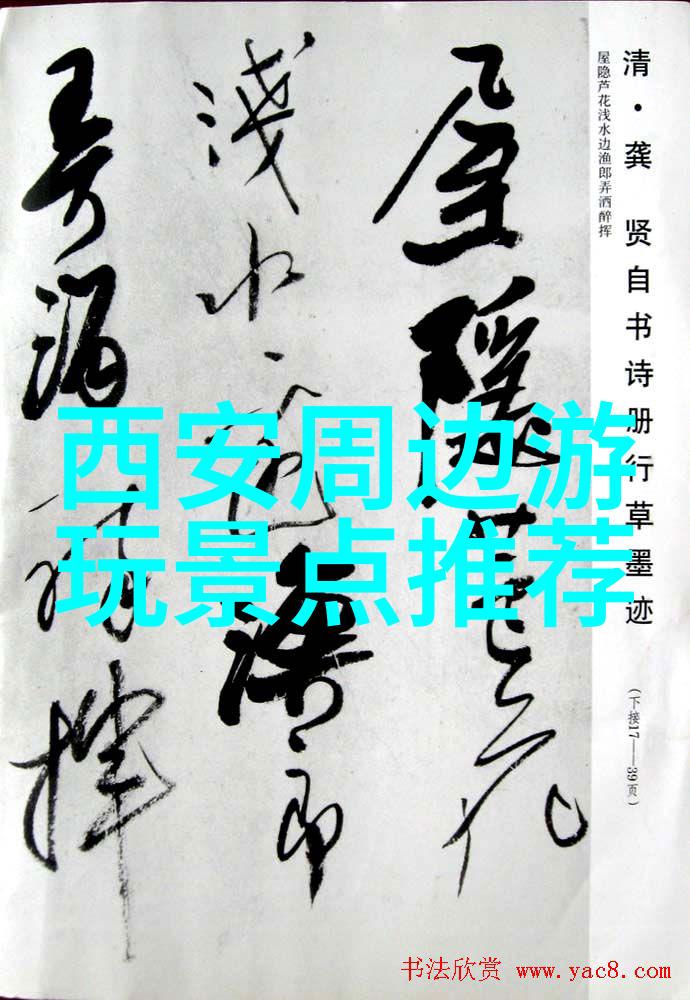 清·龚 贤自书诗册行草墨迹
(下接17——39页)
屋隐芦花浅水边渔郎弄洒醉挥
屋隱蘆花
淺水邊漁郎
弄酒醉揮
西安周边游
玩景点推荐
书法欣赏 www.yac8.com